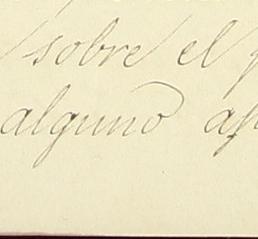 sobre el
alguno